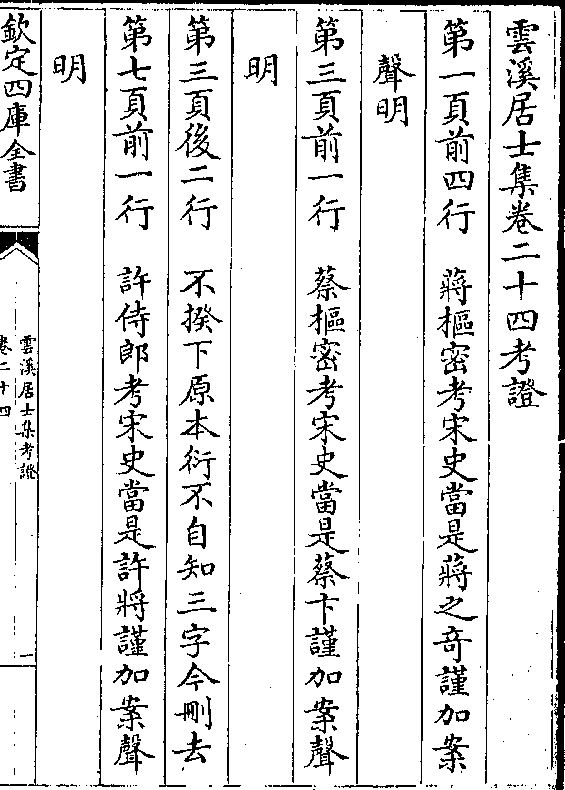 雲溪居士集卷二十四考證
第一頁前四行　蔣樞密考宋史當是蔣之竒謹加案
聲明
第三頁前一行　蔡樞密考宋史當是蔡卞謹加案聲
明
第三頁後二行　不揆下原本衍不自知三字今刪去
第七頁前一行　許侍郎考宋史當是許將謹加案聲
明
欽定四庫全書
雲溪居士集考證
卷二十四
一